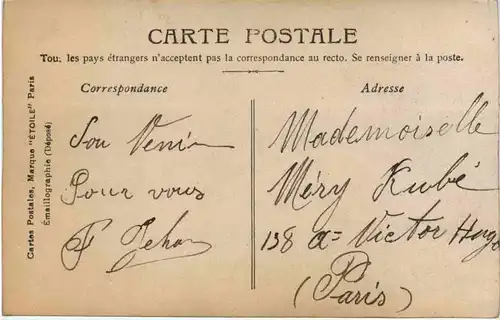 CARTE POSTALE
Tous les pays étrangers n'acceptent pas la correspondance au recto. Se renseigner à la poste.
Correspondance
Adresse
Cartes Postales, Marque "ÉTOILE" Paris
Émaillographie (Déposé)
Pour vous
Mademoiselle
Méry Kubé
138 a= Victor Hugo
(Paris)